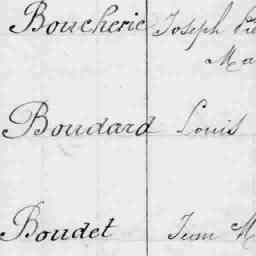 Boucherie Joseph Pie
Ma
Boudard Louis
Boudet Jean M